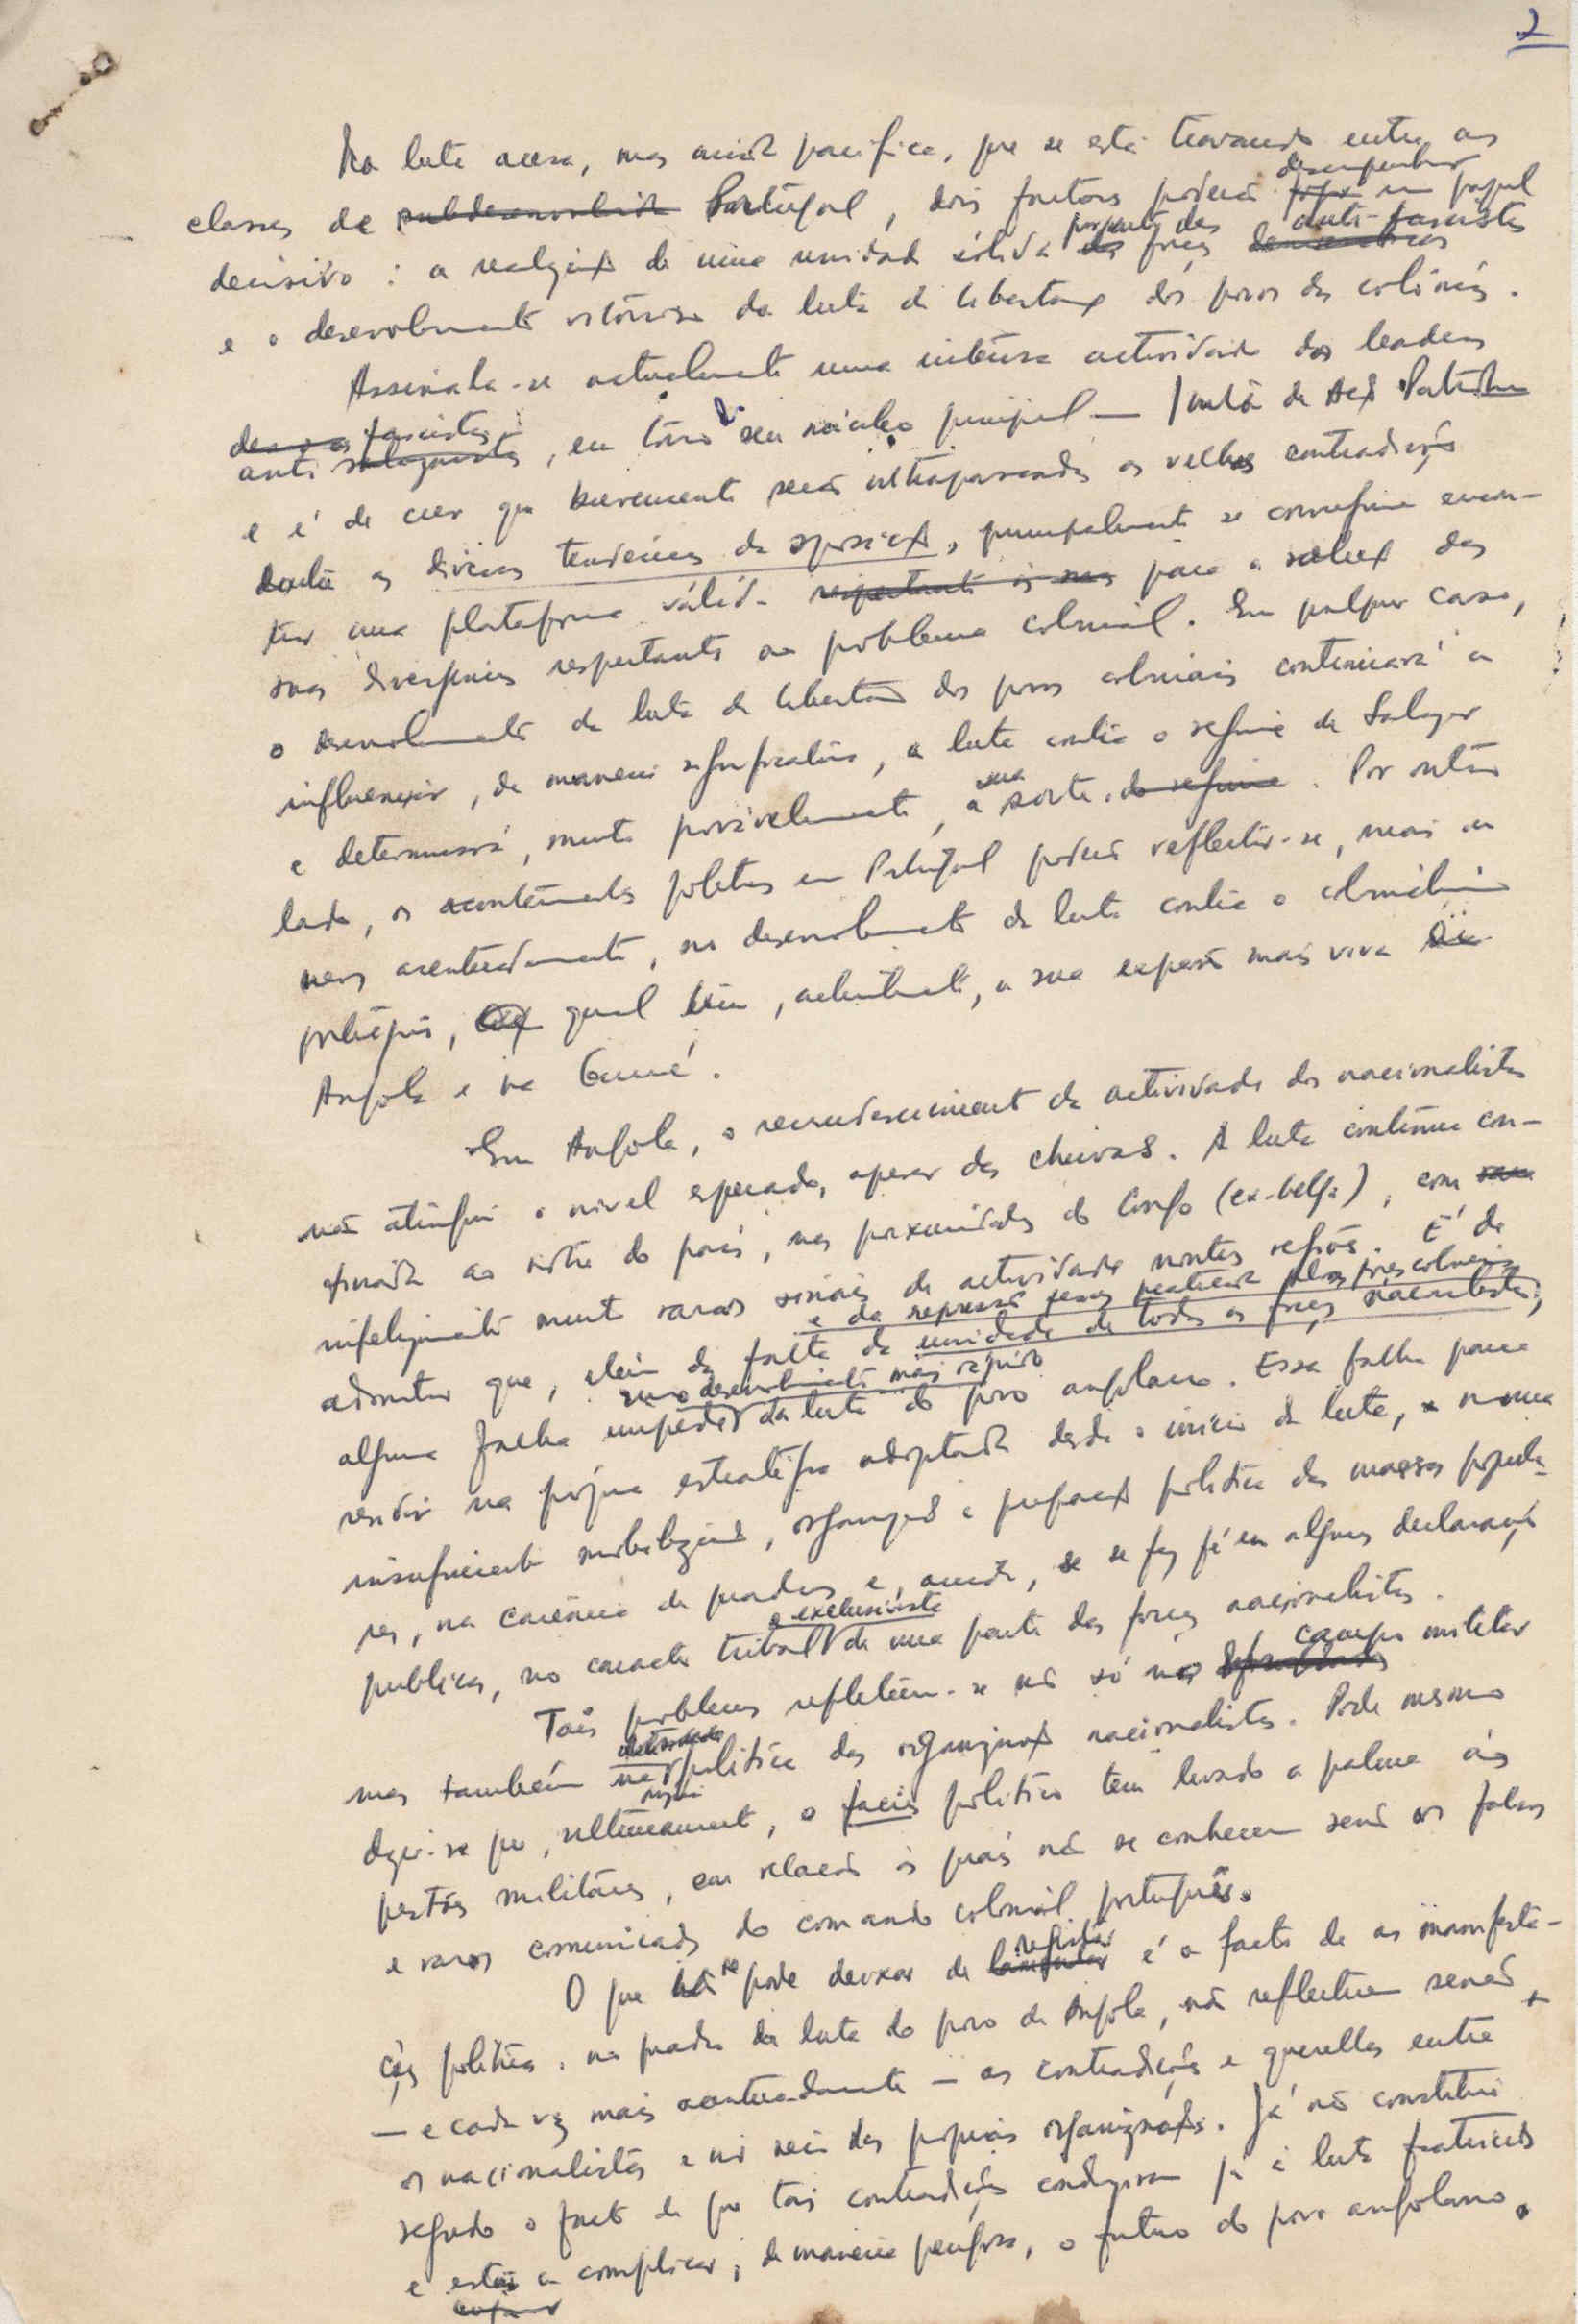 2
Na luta acesa, mas ainda pacífica, que se está travando entre as
classes de subdesenvolvido Portugal, dois factores poderão desempenhar um papel
decisivo : a realização de uma unidade sólida por parte das forças democráticas anti-fascistas
e o desenvolvimento vitorioso da luta de libertação dos povos das colónias.
Assinala-se actualmente uma intensa actividade dos leaders
anti salazaristas fascistas, em torno do seu núcleo principal — Junta de Acção Patriótica
e é de crer que brevemente serão ultrapassadas as velhas contradições
entre as diversas tendências da oposição, principalmente se conseguirem encon-
trar uma plataforma válida respeitante às suas para a solução das
suas divergências respeitantes ao problema colonial. Em qualquer caso,
o desenvolvimento da luta de libertação dos povos coloniais continuará a
influenciar, de maneira significativa, a luta contra o regime de Salazar
e determinará, muito possivelmente, a sua sorte do regime. Por outro
lado, os acontecimentos políticos em Portugal poderão reflectir-se, mais ou
menos acentuadamente, no desenvolvimento da luta contra o colonialismo
português, qual tem, actualmente, a sua expressão mais viva em
Angola e na Guiné.
Em Angola, o recrudescimento da actividade dos nacionalistas
não atingiu o nível esperado, apesar das chuvas. A luta continua con-
finada ao norte do país, nas proximidades do Congo (ex-belga), com
infelizmente muito raros sinais de actividade noutras regiões. É de
e da repressão feroz praticada pelas forças coloniais
admitir que, além da falta de unidade de todas as forças nacionalistas,
um desenvolvimento mais rápido
alguma falha impede da luta do povo angolano. Essa falha parece
residir na própria estratégia adoptada desde o início da luta, numa
insuficiente mobilização, organização e preparação política das massas popula-
res, na carência de quadros e, ainda, se se faz fé em algumas declarações
públicas, no carácter tribal e exclusivista de uma parte das forças nacionalistas.
Tais problemas reflectem-se não só no campo militar
mas também na actividade política das organizações nacionalistas. Pode mesmo
dizer-se que, ultimamente, o facies político tem levado a palma às
questões militares, em relação às quais não se conhecem senão os falsos
e raros comunicados do comando colonial português.
O que não se pode deixar de lamentar registar é o facto de as manifesta-
ções políticas, no quadro da luta do povo de Angola, não reflectirem senão
— e cada vez mais acentuadamente — as contradições e querellas entre
os nacionalistas e no seio das próprias organizações. Já não constitui
segredo o facto de que tais contradições conduziram já à luta fratricida
e estão a complicar, de maneira perigosa, o futuro do povo angolano.